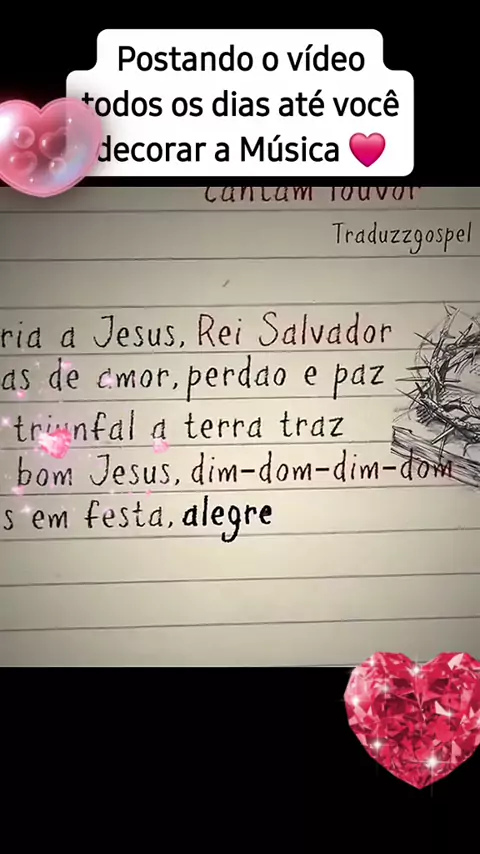 Postando o vídeo
todos os dias até você
decorar a Música
cantam louvor
Traduzzgospel
ria a Jesus, Rei Salvador
as de amor, perdao e paz
triunfal a terra traz
bom Jesus, dim-dom-dim-dom
s em festa, alegre